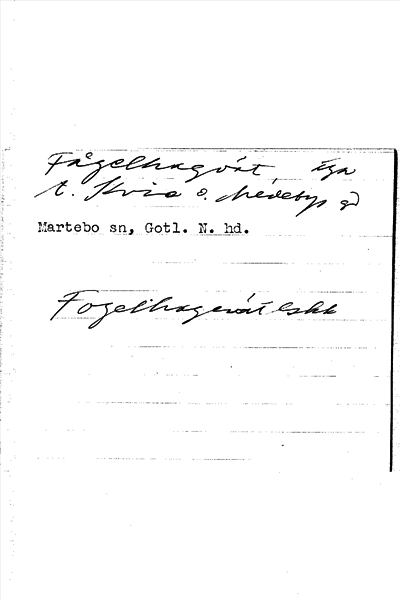 Fågelhagvät, äga
t. Kvie o. Medeby gd
Martebo sn, Gotl. N. hd.
Fogelhagevät Eskk